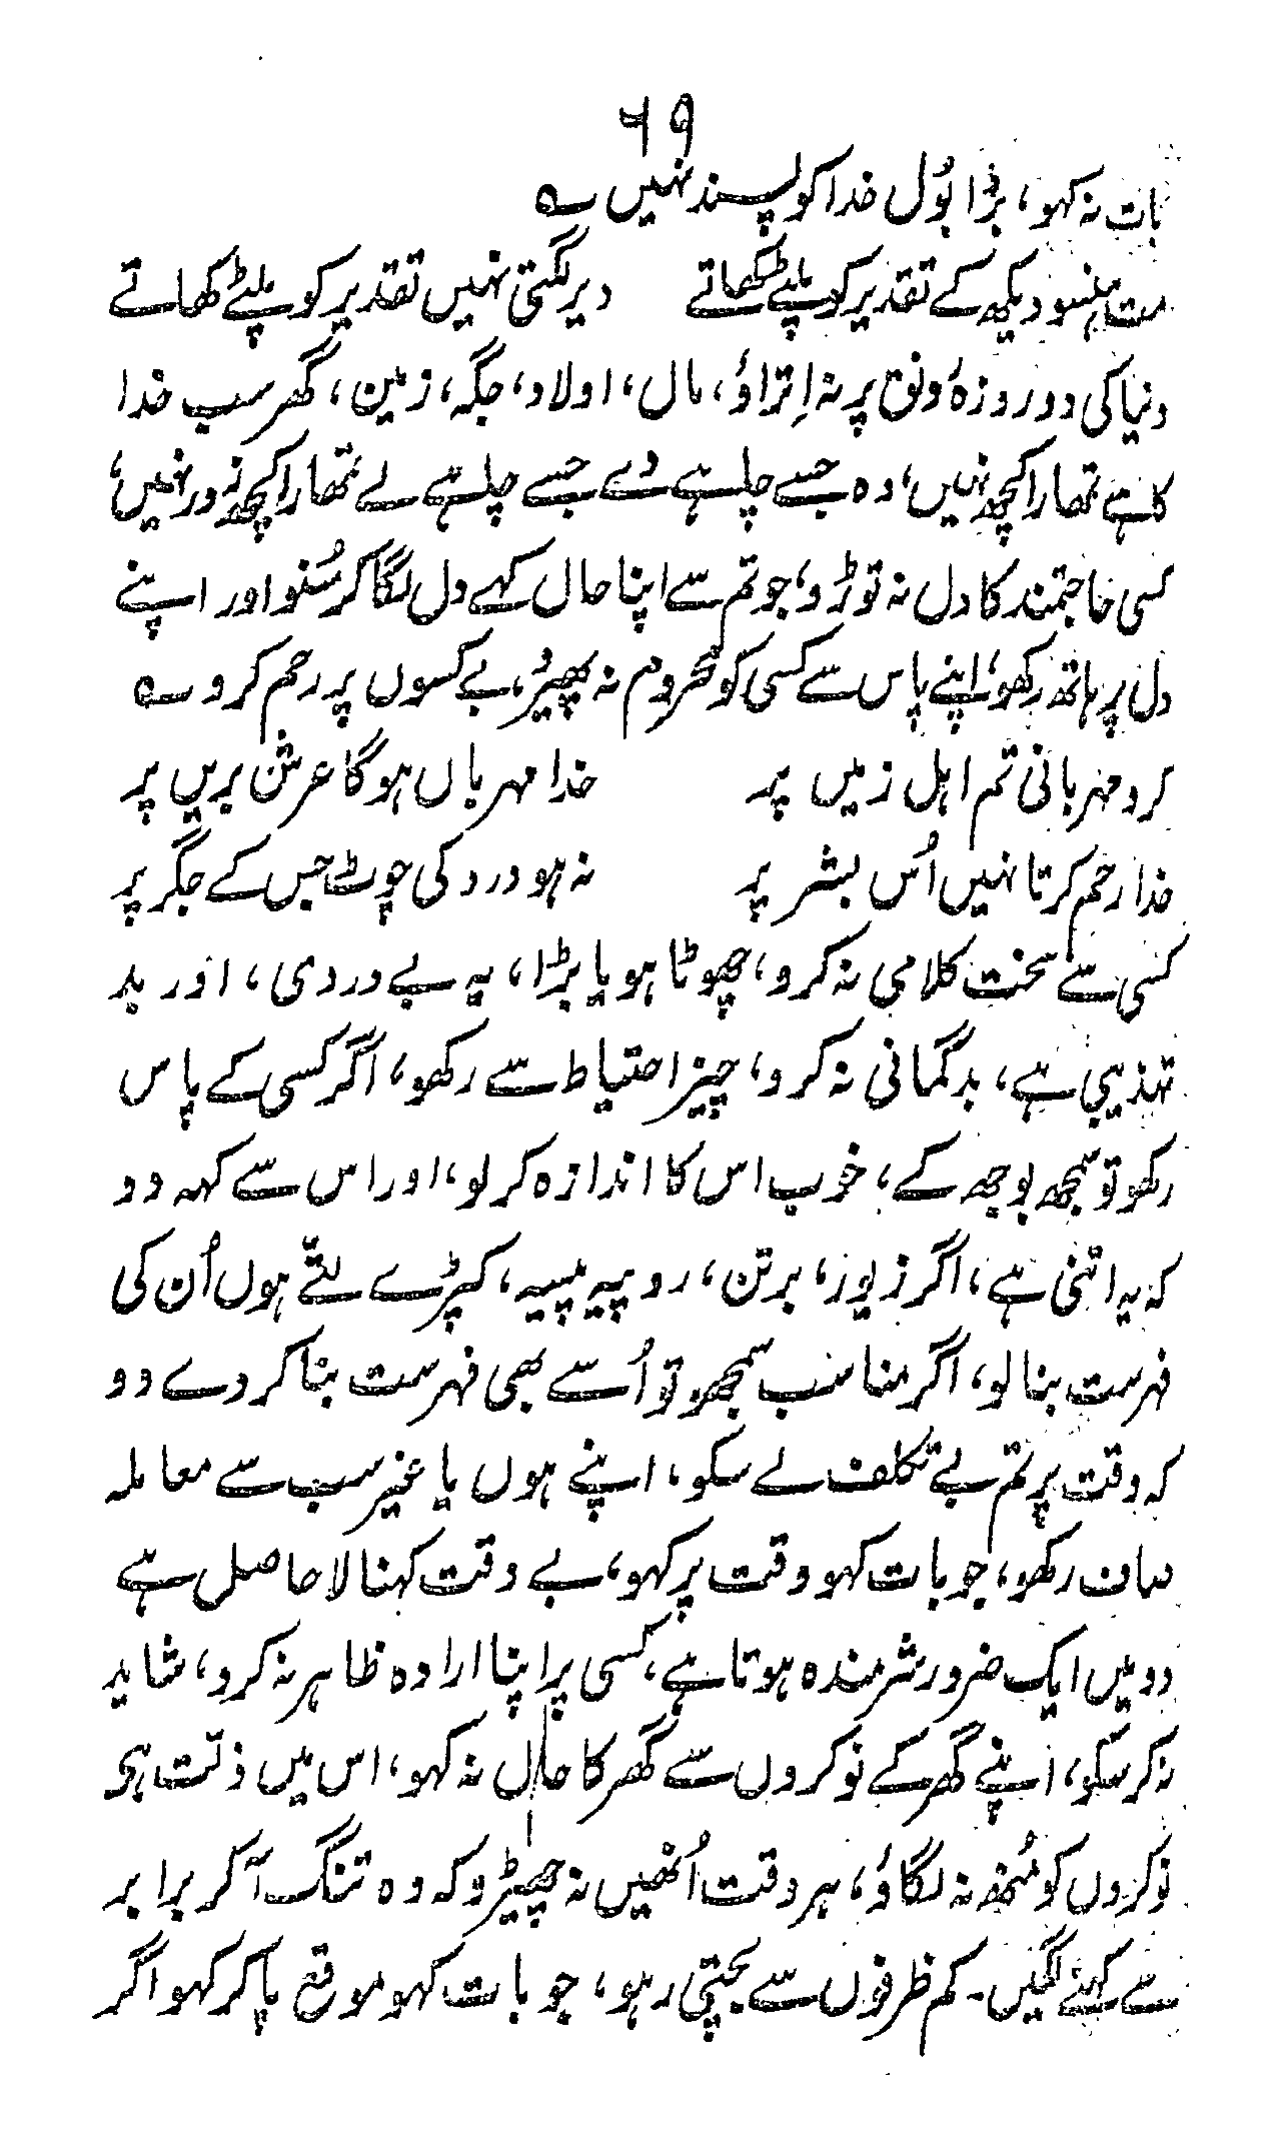 ۶۹
بات نہ کہو، بڑا بُول خدا کو پسند نہیں ؎
مت ہنسو دیکھ کے تقدیر کو پلٹے کھاتے دیر لگتی نہیں تقدیر کو پلٹے کھاتے
دنیا کی دو روزہ رونق پر نہ اِتراؤ، مال، اولاد، جگہ، زمین، گھر سب خدا
کا ہے تمھارا کچھ نہیں، وہ جسے چاہے دے جسے چاہے لے تمھارا کچھ زور نہیں،
کسی حاجتمند کا دل نہ توڑو، جو تم سے اپنا حال کہے دل لگا کر سُنو اور اپنے
دل پر ہاتھ رکھو، اپنے پاس سے کسی کو محروم نہ پھیرُ، بے کسوں پر رحم کرو ؎
کرو مہربانی تم اہل زمیں پر خدا مہرباں ہوگا عرش بریں پر
خدا رحم کرتا نہیں اُس بشر پر نہ ہو درد کی چوٹ جس کے جگر پر
کسی سے سخت کلامی نہ کرو، چھوٹا ہو یا بڑا، یہ بے دردی، اور بد
تہذیبی ہے، بدگمانی نہ کرو، چیز احتیاط سے رکھو، اگر کسی کے پاس
رکھو تو سمجھ بوجھ کے، خوب اس کا اندازہ کر لو، اور اس سے کہہ دو
کہ یہ اتنی ہے، اگر زیور، برتن، روپیہ پیسہ، کپڑے لتّے ہوں اُن کی
فہرست بنا لو، اگر مناسب سمجھو تو اُسے بھی فہرست بنا کر دے دو
کہ وقت پر تم بے تکلف لے سکو، اپنے ہوں یا غیر سب سے معاملہ
صاف رکھو، جو بات کہو وقت پر کہو، بے وقت کہنا لاحاصل ہے
دو میں ایک ضرور شرمندہ ہوتا ہے، کسی پر اپنا ارادہ ظاہر نہ کرو، شاید
نہ کر سکو، اپنے گھر کے نوکروں سے گھر کا حال نہ کہو، اس میں ذلّت ہی
نوکروں کو مُنھ نہ لگاؤ، ہر وقت اُنھیں نہ چھیڑو کہ وہ تنگ آ کر برابر
سے کہنے لگیں۔ کم ظرفوں سے بچتی رہو، جو بات کہو موقع پا کر کہو اگر